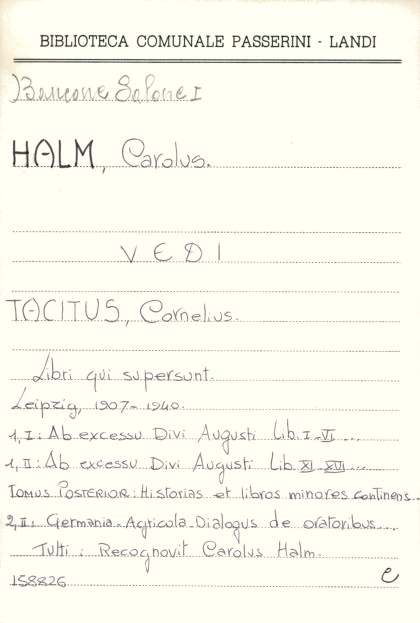 BIBLIOTECA COMUNALE PASSERINI - LANDI
Bancone Salone I
HALM, Carolus.
VEDI
TACITUS, Cornelius.
Libri qui supersunt.
Leipzig, 1907-1940.
1, I: Ab excessu Divi Augusti Lib. I-VI ...
1, II: Ab excessu Divi Augusti Lib. XI-XVI ...
TOMUS POSTERIOR: Historias et libros minores continens..
2, II: Germania-Agricola-Dialogus de oratoribus...
Tutti: Recognovit Carolus Halm.
158826 e